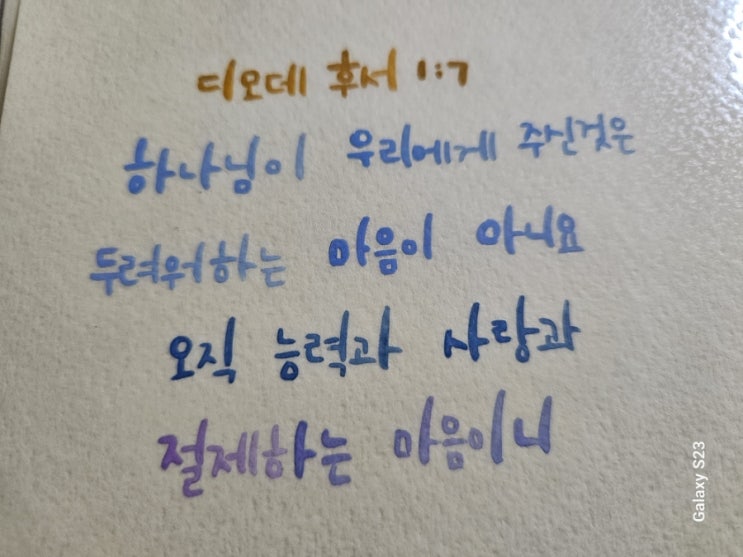 디오데 후서 1:7
하나님이 우리에게 주신것은
두려워하는 마음이 아니요
오직 능력과 사랑과
절제하는 마음이니
Galaxy S23